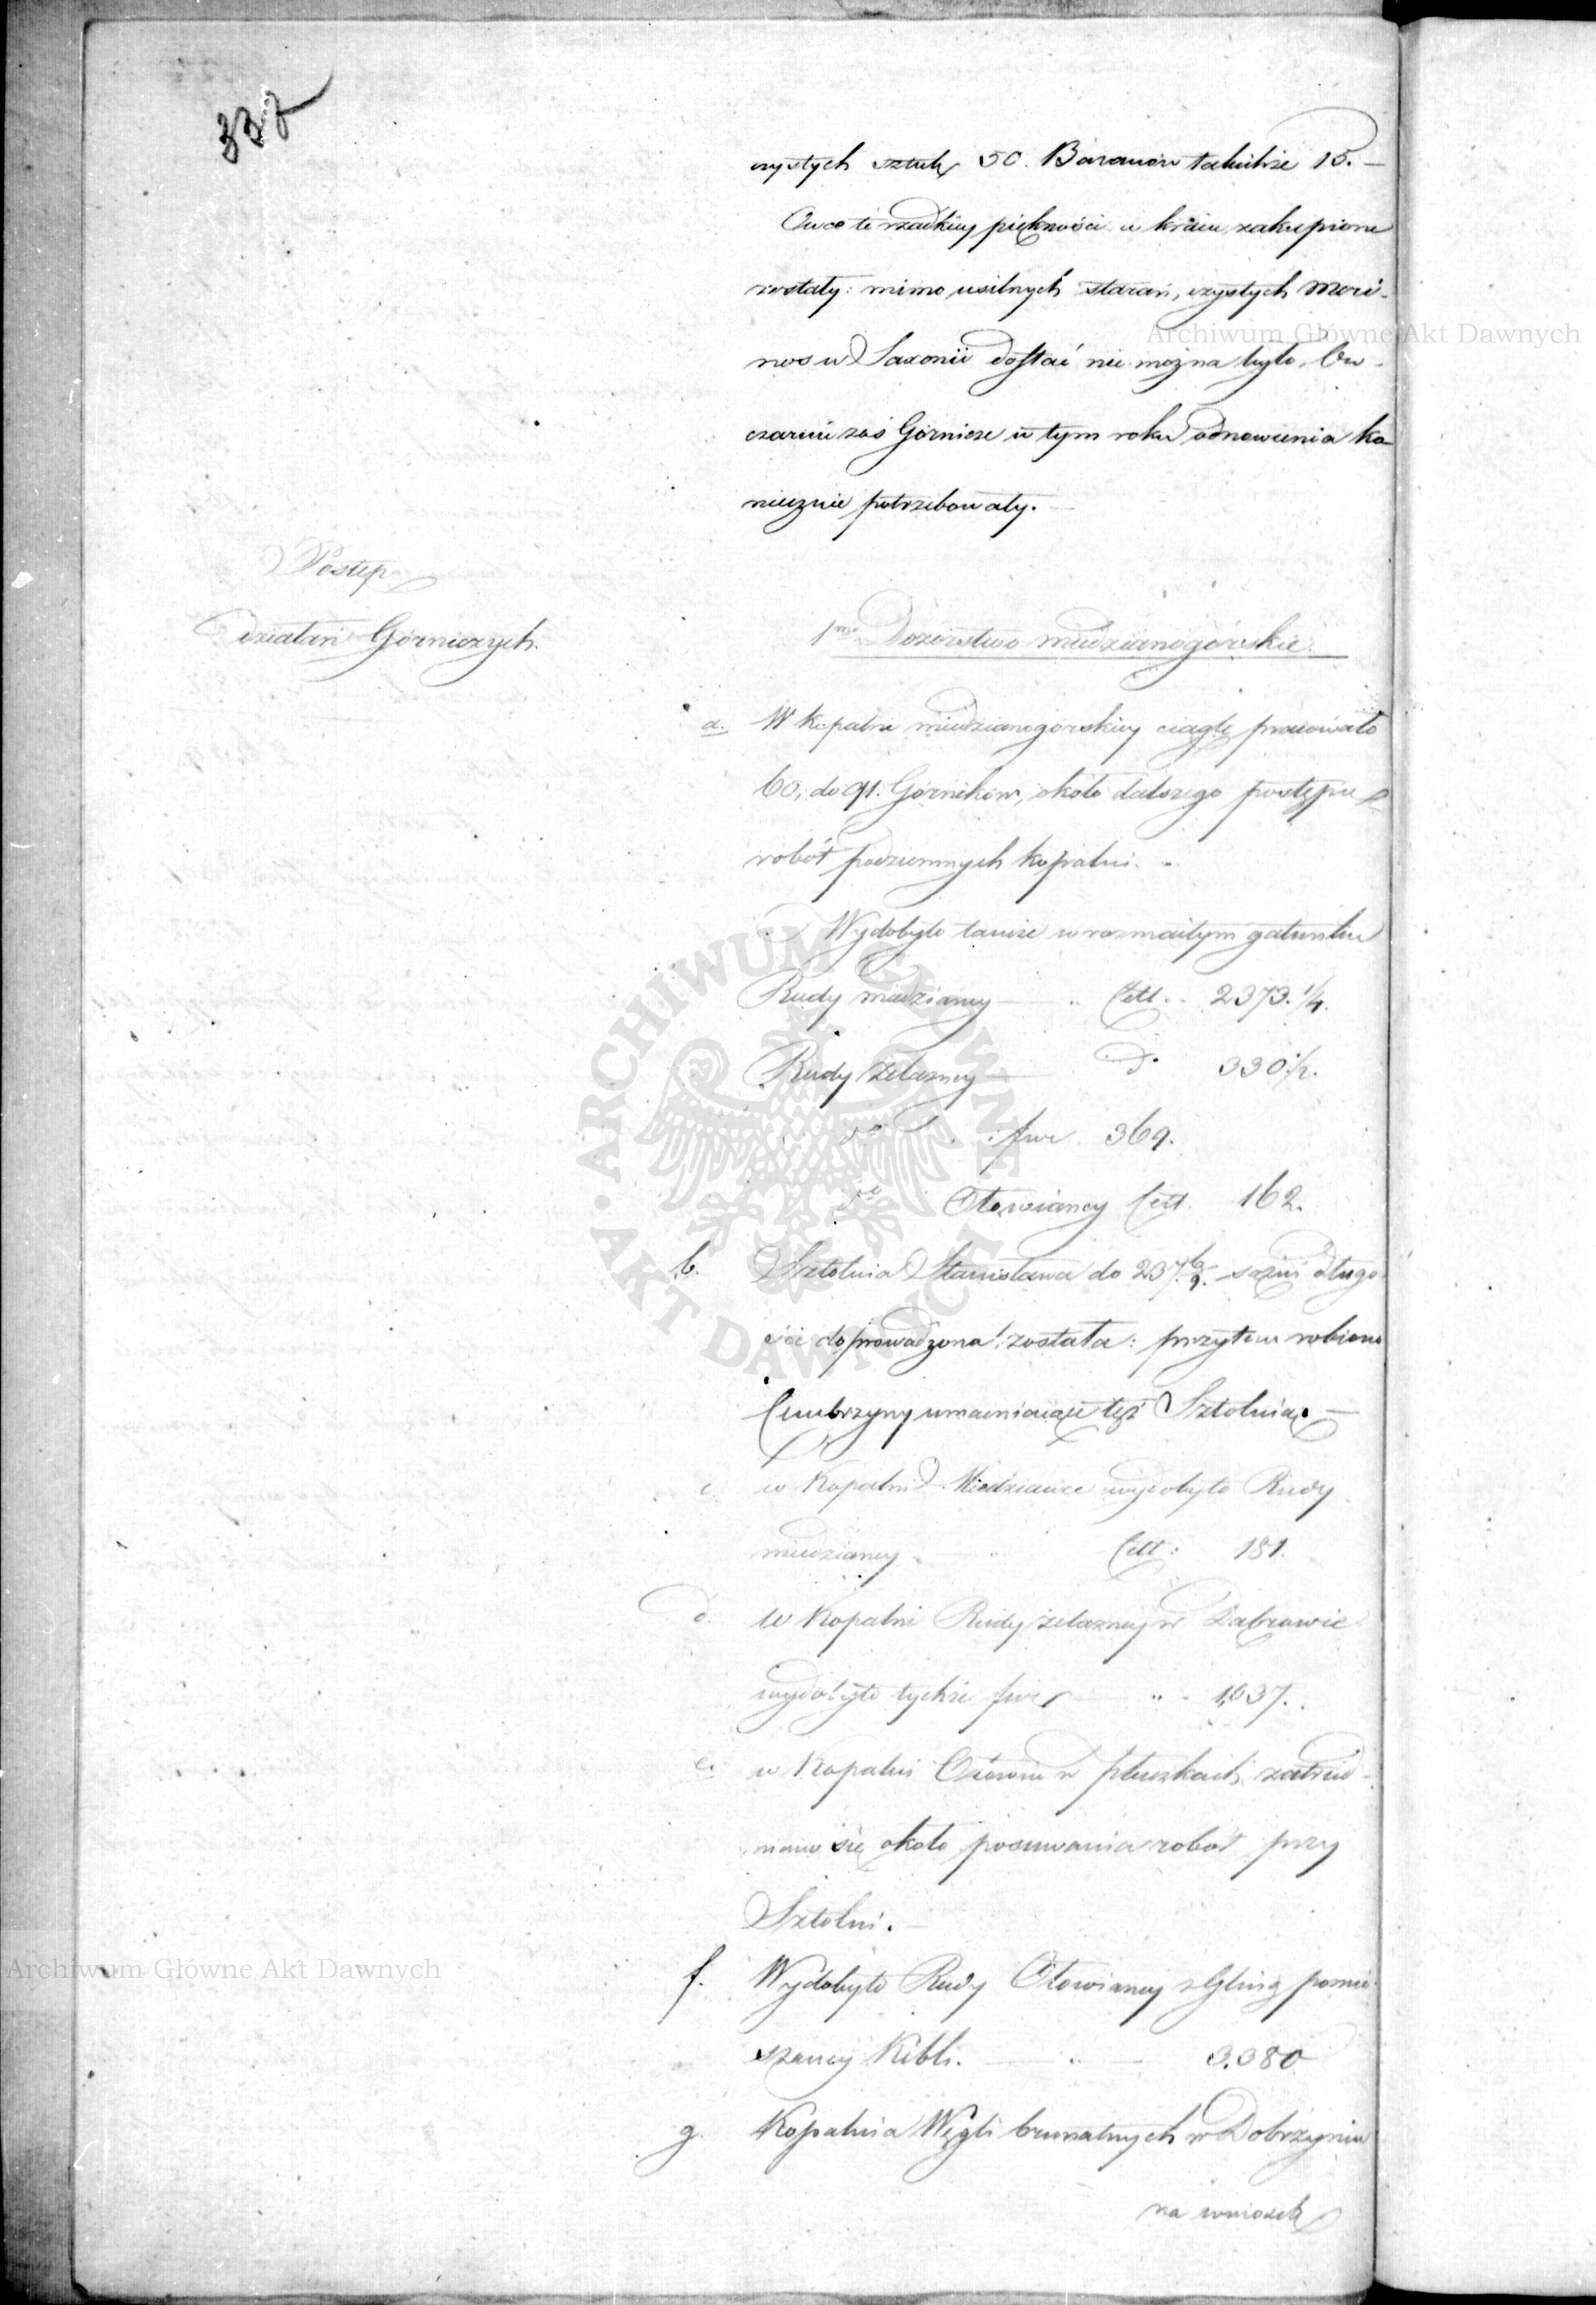 337
czystych sztuk 50. Baranów takichże 15. —
Owce te rzadkiey piękności w kraiu zakupione
zostały: mimo usilnych starań, czystych Meri-
nos w Saxonii dostać nie można było, Ow-
czarnie zaś Górnicze w tym roku odnowienia ko-
niecznie potrzebowały. —
Postęp
działań Górniczych.
1mo Dozorstwo miedzianogórskie.
a. W kopalni miedzianogórskiey ciągle pracowało
60, do 91. Górników, około dalszego postępu
robót podziemnych kopalni. -
Wydobyto tamże w rozmaitym gatunku
Rudy miedzianey — Cett. 2373. 1/4.
Rudy żelazney — do 330 1/2.
do fur 369.
do Ołowianey Cett. 162.
b. Sztolnia Stanisława do 237. sążni długo-
ści doprowadzona została: przytem robiono
Cembrzyny umacniaiące tęż Sztolnią. —
c. w Kopalni Miedziance wydobyto Rudy
miedzianey — Cett: 181.
d. W Kopalni Rudy żelazney w Dąbrowie
wydobyto tychże fur — 1,037.
e. w Kopalni Ołowiu w płuczkach zatrud-
niano się około posuwania robót przy
Sztolni. —
f. Wydobyto Rudy Ołowianey z Gliną pomie-
szaney Kibli. — 3.380
g. Kopalnia Węgli brunatnych w Dobrzyniu
na wniosek
Archiwum Główne Akt Dawnych
Archiwum Główne Akt Dawnych
ARCHIWUM GŁÓWNE • AKT DAWNYCH •